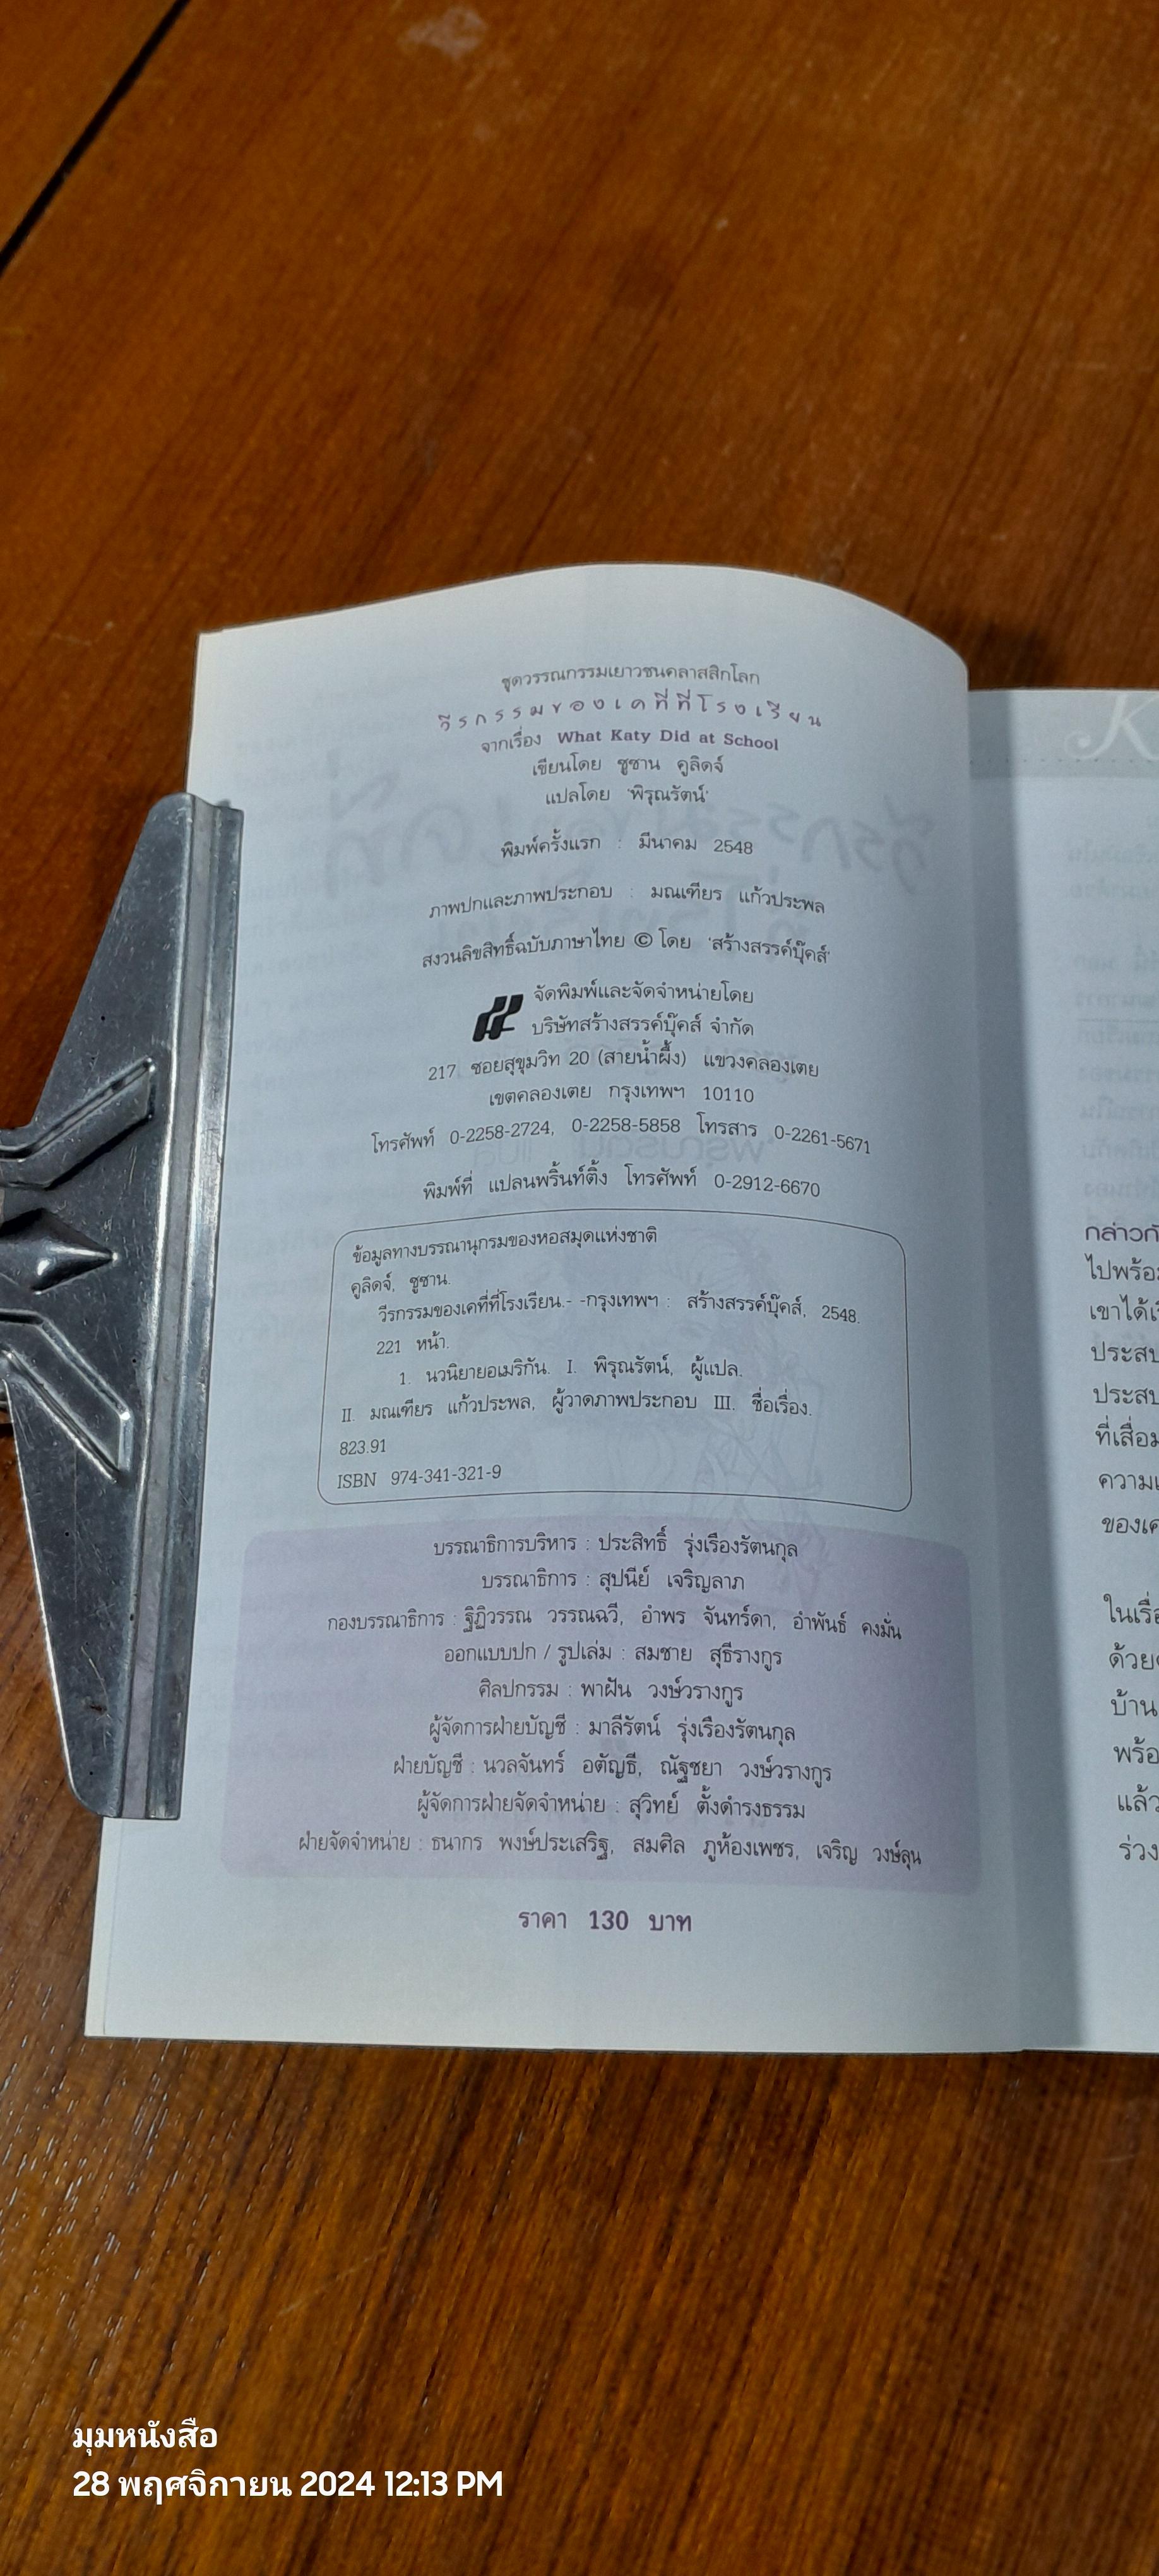 ชุดวรรณกรรมเยาวชนคลาสสิกโลก
วีรกรรมของเคที่ที่โรงเรียน
จากเรื่อง What Katy Did at School
เขียนโดย ซูซาน คูลิดจ์
แปลโดย 'พิรุณรัตน์'
พิมพ์ครั้งแรก : มีนาคม 2548
ภาพปกและภาพประกอบ : มณเฑียร แก้วประพล
สงวนลิขสิทธิ์ฉบับภาษาไทย © โดย 'สร้างสรรค์บุ๊คส์'
จัดพิมพ์และจัดจำหน่ายโดย
บริษัทสร้างสรรค์บุ๊คส์ จำกัด
217 ซอยสุขุมวิท 20 (สายน้ำผึ้ง) แขวงคลองเตย
เขตคลองเตย กรุงเทพฯ 10110
โทรศัพท์ 0-2258-2724, 0-2258-5858 โทรสาร 0-2261-5671
พิมพ์ที่ แปลนพริ้นท์ติ้ง โทรศัพท์ 0-2912-6670
ข้อมูลทางบรรณานุกรมของหอสมุดแห่งชาติ
คูลิดจ์, ซูซาน.
วีรกรรมของเคที่ที่โรงเรียน.- -กรุงเทพฯ : สร้างสรรค์บุ๊คส์, 2548.
221 หน้า.
1. นวนิยายอเมริกัน. I. พิรุณรัตน์, ผู้แปล.
II. มณเฑียร แก้วประพล, ผู้วาดภาพประกอบ III. ชื่อเรื่อง.
823.91
ISBN 974-341-321-9
บรรณาธิการบริหาร : ประสิทธิ์ รุ่งเรืองรัตนกุล
บรรณาธิการ : สุปนีย์ เจริญลาภ
กองบรรณาธิการ : ฐิฏิวรรณ วรรณฉวี, อำพร จันทร์ดา, อำพันธ์ คงมั่น
ออกแบบปก / รูปเล่ม : สมชาย สุธีรางกูร
ศิลปกรรม : พาฝัน วงษ์วรางกูร
ผู้จัดการฝ่ายบัญชี : มาลีรัตน์ รุ่งเรืองรัตนกุล
ฝ่ายบัญชี : นวลจันทร์ อตัญธี, ณัฐชยา วงษ์วรางกูร
ผู้จัดการฝ่ายจัดจำหน่าย : สุวิทย์ ตั้งดำรงธรรม
ฝ่ายจัดจำหน่าย : ธนากร พงษ์ประเสริฐ, สมศิล ภูห้องเพชร, เจริญ วงษ์ลุน
ราคา 130 บาท
K
กล่าวกั
ไปพร้อม
เขาได้เ
ประสบ
ประสบ
ที่เสื่อม
ความเ
ของเค
ในเรื่อ
ด้วย
บ้าน
พร้อ
แล้ว
ร่วง
มุมหนังสือ
28 พฤศจิกายน 2024 12:13 PM